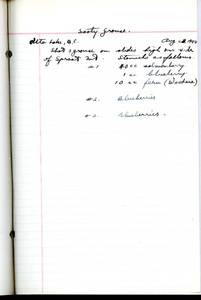 Sooty Grouse.
Alta Lake, B.C. Aug
Shot 3 grouse on slides high on side
of Sproat Mt. Stomachs as follows.
#1 cc salmonberry
1 cc blueberry
10 cc fern (Woodsia)
#2. Blueberries
#3. Blueberries.